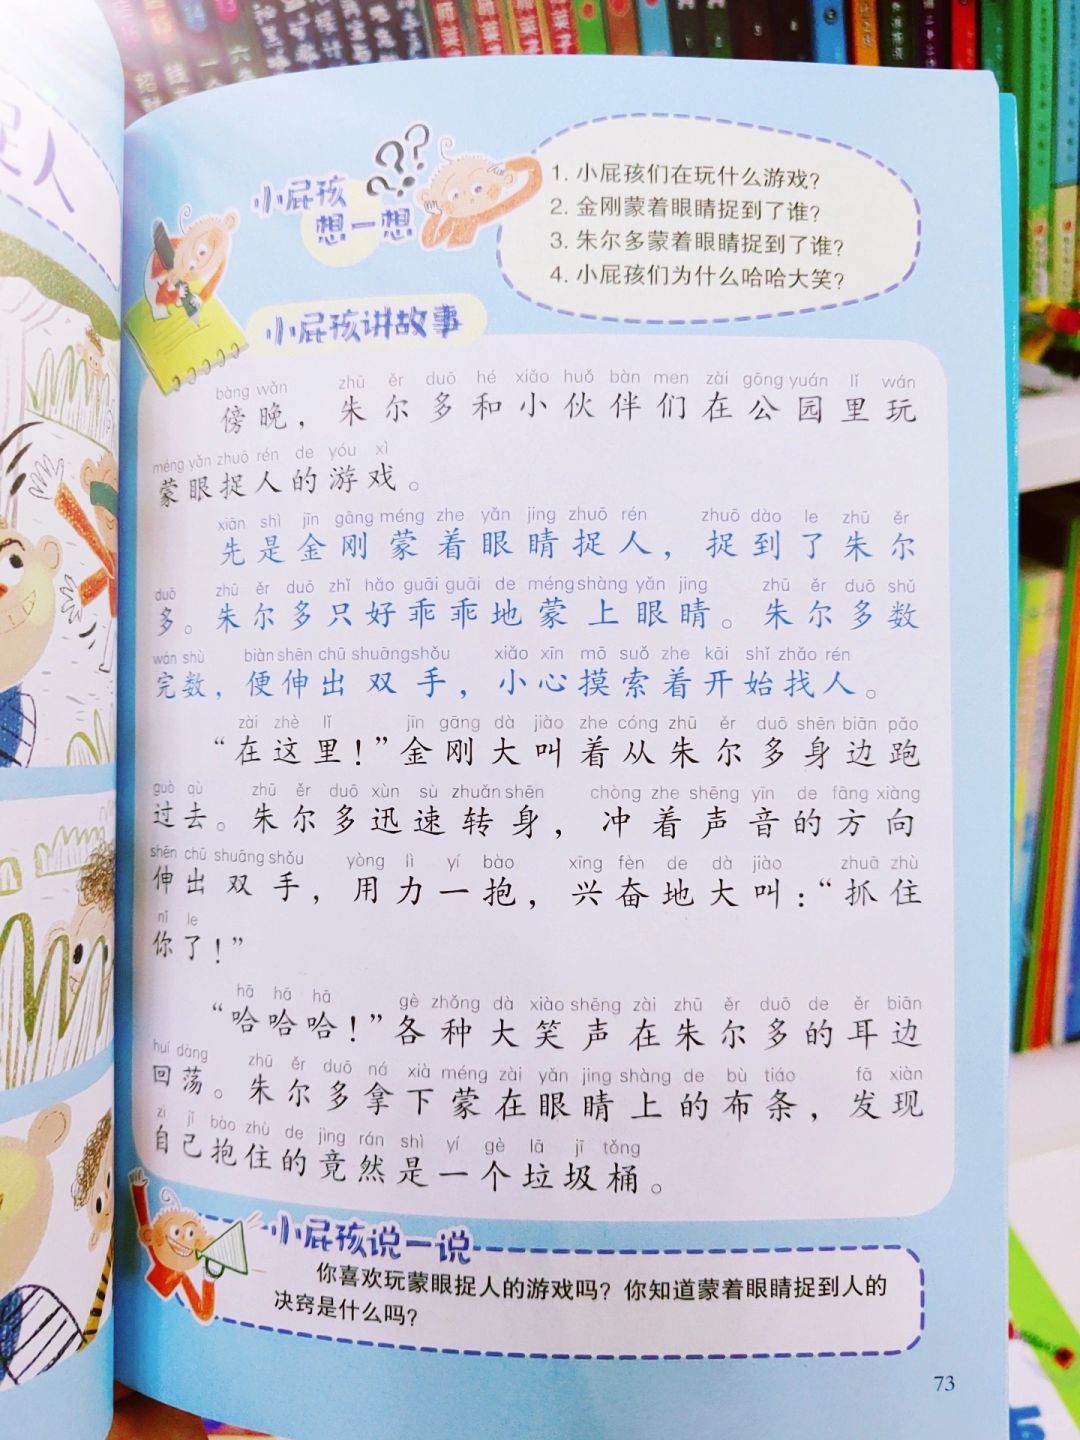 小屁孩
想一想
1. 小屁孩们在玩什么游戏?
2. 金刚蒙着眼睛捉到了谁?
3. 朱尔多蒙着眼睛捉到了谁?
4. 小屁孩们为什么哈哈大笑?
小屁孩讲故事
bàng wǎn zhū ěr duō hé xiǎo huǒ bàn men zài gōng yuán lǐ wán
傍晚，朱尔多和小伙伴们在公园里玩
méng yǎn zhuō rén de yóu xì
蒙眼捉人的游戏。
xiān shì jīn gāng méng zhe yǎn jing zhuō rén zhuō dào le zhū ěr
先是金刚蒙着眼睛捉人，捉到了朱尔
duō zhū ěr duō zhǐ hǎo guāi guāi de méng shàng yǎn jing zhū ěr duō shǔ
多。朱尔多只好乖乖地蒙上眼睛。朱尔多数
wán shù biàn shēn chū shuāng shǒu xiǎo xīn mō suǒ zhe kāi shǐ zhǎo rén
完数，便伸出双手，小心摸索着开始找人。
zài zhè lǐ jīn gāng dà jiào zhe cóng zhū ěr duō shēn biān pǎo
“在这里！”金刚大叫着从朱尔多身边跑
guò qù zhū ěr duō xùn sù zhuǎn shēn chòng zhe shēng yīn de fāng xiàng
过去。朱尔多迅速转身，冲着声音的方向
shēn chū shuāng shǒu yòng lì yí bào xīng fèn de dà jiào zhuā zhù
伸出双手，用力一抱，兴奋地大叫：“抓住
nǐ le
你了！”
hā hā hā gè zhǒng dà xiào shēng zài zhū ěr duō de ěr biān
“哈哈哈！”各种大笑声在朱尔多的耳边
huí dàng zhū ěr duō ná xià méng zài yǎn jing shàng de bù tiáo fā xiàn
回荡。朱尔多拿下蒙在眼睛上的布条，发现
zì jǐ bào zhù de jìng rán shì yí gè lā jī tǒng
自己抱住的竟然是一个垃圾桶。
小屁孩说一说
你喜欢玩蒙眼捉人的游戏吗？你知道蒙着眼睛捉到人的
决窍是什么吗？
73